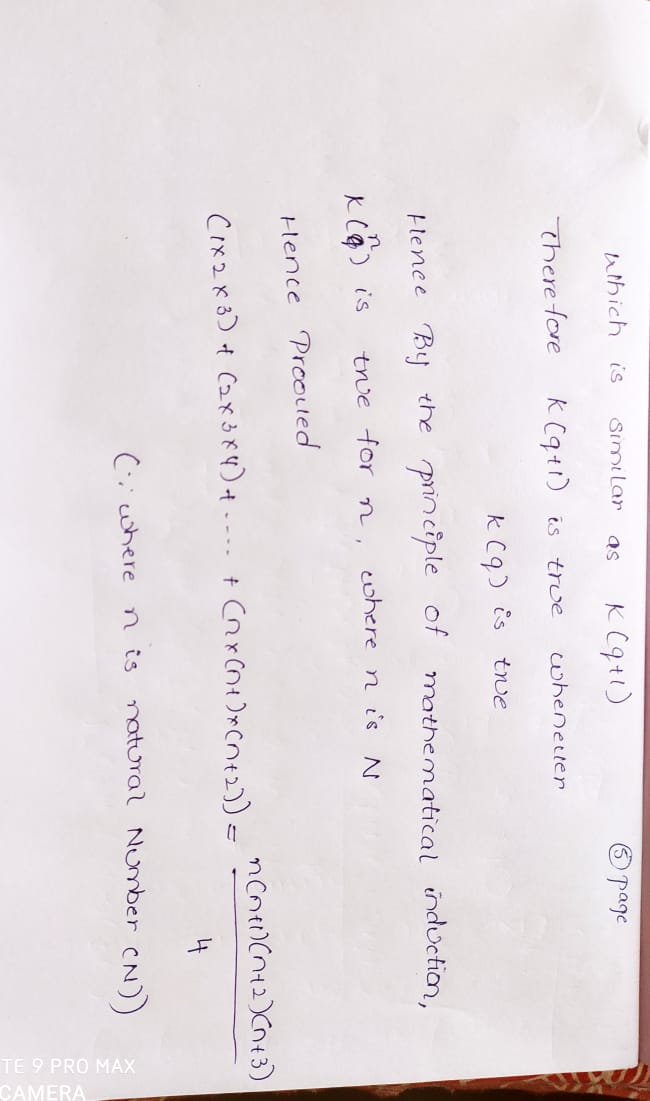 ⑤ page
which is similar as K(q+1)
Therefore K(q+1) is true whenever
K(q) is true
Hence By the principle of mathematical induction,
K(n) is true for n, where n is N
Hence Prooved
(1×2×3) + (2×3×4) + .... + (n×(n+1)×(n+2)) = n(n+1)(n+2)(n+3)
4
(∵ where n is natural Number (N))
TE 9 PRO MAX
CAMERA